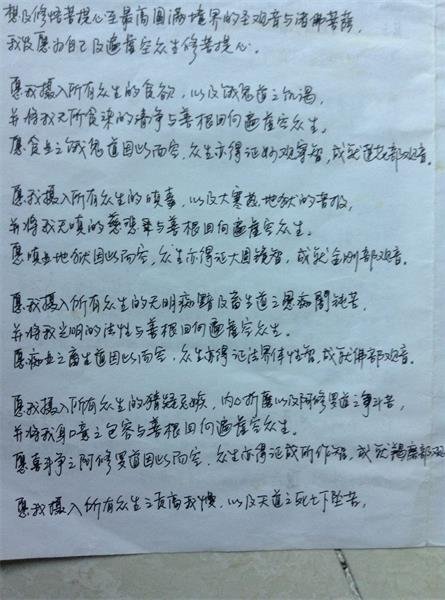 想及修悟菩提心至最高圆满境界的圣观音与诸佛菩萨,
我发愿为自己及遍虚空众生修菩提心。
愿我摄入所有众生的贪欲,以及饿鬼道之饥渴,
并将我无所贪染的清净与善根回向遍虚空众生。
愿贪业之饿鬼道因此而空,众生亦得证妙观察智,成就莲花部观音。
愿我摄入所有众生的嗔毒,以及大寒热地狱的苦报,
并将我无嗔的慈悲与善根回向遍虚空众生。
愿嗔业地狱因此而空,众生亦得证大圆镜智,成就金刚部观音。
愿我摄入所有众生的无明痴黯及畜生道之愚痴闇钝苦,
并将我光明的法性与善根回向遍虚空众生。
愿痴业之畜生道因此而空,众生亦得证法界体性智,成就佛部观音。
愿我摄入所有众生的猜疑忌嫉,内心折磨以及阿修罗道之争斗苦,
并将我身口意之包容与善根回向遍虚空众生。
愿喜斗争之阿修罗道因此而空,众生亦得证成所作智,成就羯磨部观
愿我摄入所有众生之贡高我慢,以及天道之死亡下坠苦,